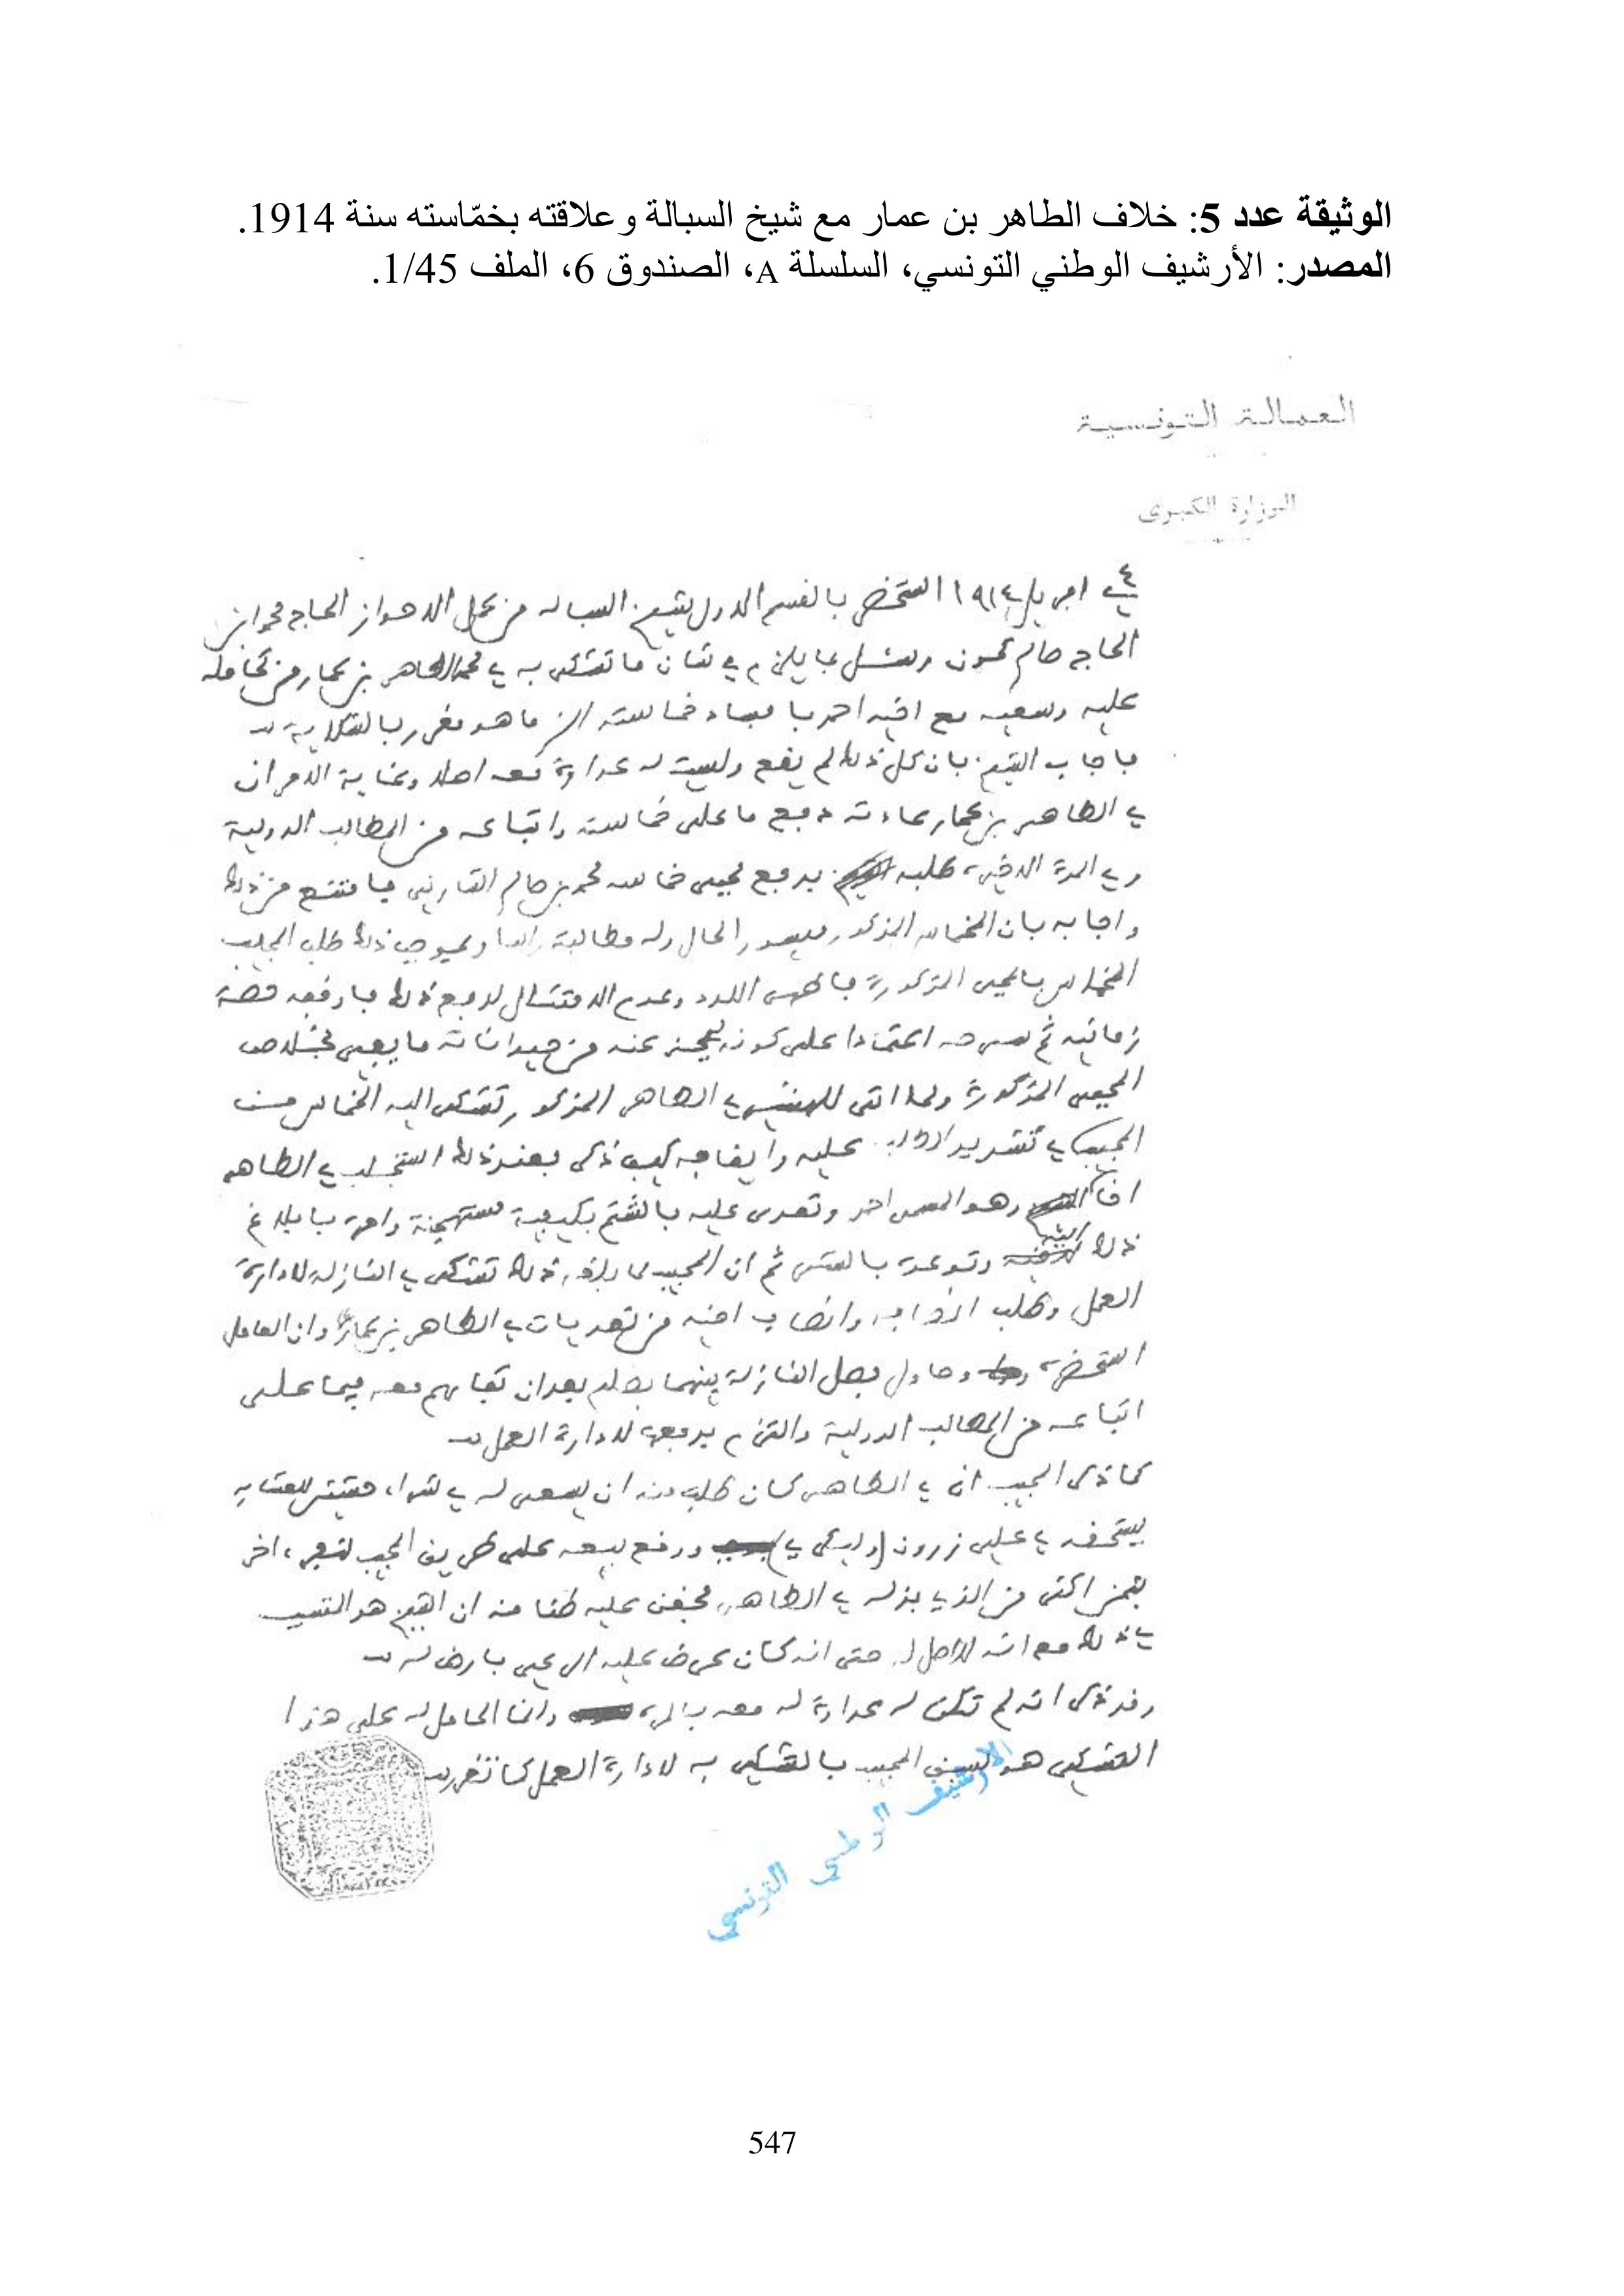 الوثيقة عدد 5: خلاف الطاهر بن عمار مع شيخ السبالة وعلاقته بخمّاسته سنة 1914.
المصدر: الأرشيف الوطني التونسي، السلسلة A، الصندوق 6، الملف 1/45.
العمالة التونسية
الوزارة الكبرى
في ٤ افريل ١٩١٤ استحضر بالقسم الاول شيخ السباله من عمل الاحواز الحاج محمد ابن
الحاج صالح وسئل عما يلزم في شان ما تشكى به سي محمد الطاهر بن عمار من تحامله
عليه وسعيه مع اخيه احمد بافساد خماسته الخ ما هو مقرر بالشكاية
فاجاب الشيخ بان كل ذلك لم يقع وليست له عداوة معه اصلا وغاية الامر ان
سي الطاهر بن عمار عادته دفع ما على خماسته واتباعه من المطالب الدولية
وفي المدة الاخيرة طلبه بدفع مجبى خماسه محمد بن صالح فامتنع من ذلك
واجابه بان الخماس المذكور ميسور الحال وله وبموجب ذلك طلب المجيب
الخماس بالمجبى المذكورة فاظهر اللدد وعدم الامتثال لدفع ذلك فاوقفه حصة
زمانية ثم سرحه اعتمادا على كونه من حيواناته ما يفي بخلاص
المجبى المذكورة ولما اتى للهنشير سي الطاهر المذكور تشكى اليه الخماس من
المجيب في تشديد عليه وايقافه كيف ذكر فعند ذلك استجلب سي الطاهر
اخا وهو احمد وتعدى عليه بالشتم بكيفية مستهجنة وامره بابلاغ
ذلك لاخيه وتوعده ثم ان المجيب لما بلغه ذلك تشكى في النازلة لادارة
العمل وطلب انصافه وانصاف اخيه من تعديات سي الطاهر بن عمار وان العامل
استحضره وحاول فصل النازلة بينهما بصلح بعد ان تفاهم معه فيما على
اتباعه من المطالب الدولية والتزم بدفعه لادارة العمل
كما ذكر المجيب ان سي الطاهر كان طلب منه ان يسعى له في شراء
سي علي زروق ووقع بيعه على طريق المجيب لشخص اخر
بثمن اكثر من الذي بذله سي الطاهر فحقد عليه ظنا منه ان الشيخ هو المتسبب
في ذلك مع انه لا اصل له حتى انه كان عرض عليه بارض له
وقد ذكر انه لم تكن له عداوة له معه بالمرة وانما الحامل له على هذا
التشكي هو سبق المجيب بالتشكي به لادارة العمل كما تقرر
الأرشيف الوطني التونسي
547